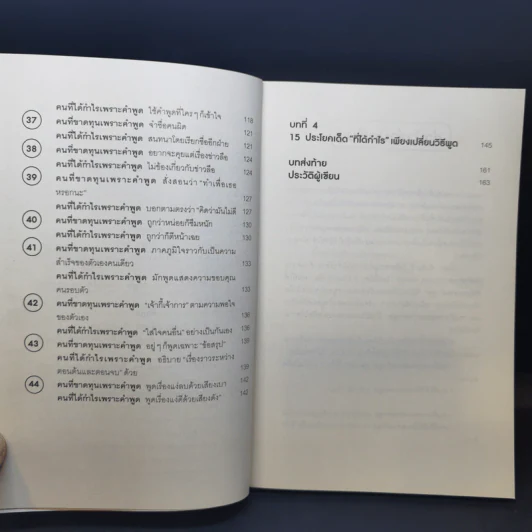 คนที่ได้กำไรเพราะคำพูด ใช้คำพูดที่ใครๆ ก็เข้าใจ 118
37 คนที่ขาดทุนเพราะคำพูด จำชื่อคนผิด 121
คนที่ได้กำไรเพราะคำพูด สนทนาโดยเรียกชื่ออีกฝ่าย 121
38 คนที่ขาดทุนเพราะคำพูด อยากจะคุยแต่เรื่องข่าวลือ 124
คนที่ได้กำไรเพราะคำพูด ไม่ข้องเกี่ยวกับข่าวลือ 124
39 คนที่ขาดทุนเพราะคำพูด สั่งสอนว่า "ทำเพื่อเธอ
หรอกนะ" 127
คนที่ได้กำไรเพราะคำพูด บอกตามตรงว่า "คิดว่ามันไม่ดี" 127
40 คนที่ขาดทุนเพราะคำพูด ถูกว่าหน่อยก็ซึมหนัก 130
คนที่ได้กำไรเพราะคำพูด ถูกว่าก็ตีหน้าเฉย 130
41 คนที่ขาดทุนเพราะคำพูด ภาคภูมิใจราวกับเป็นความ
สำเร็จของตัวเองคนเดียว 133
คนที่ได้กำไรเพราะคำพูด มักพูดแสดงความขอบคุณ
คนรอบตัว 133
42 คนที่ขาดทุนเพราะคำพูด "เจ้ากี้เจ้าการ" ตามความพอใจ
ของตัวเอง 136
คนที่ได้กำไรเพราะคำพูด "ใส่ใจคนอื่น" อย่างเป็นกันเอง 136
43 คนที่ขาดทุนเพราะคำพูด อยู่ๆ ก็พูดเฉพาะ "ข้อสรุป" 139
คนที่ได้กำไรเพราะคำพูด อธิบาย "เรื่องราวระหว่าง
ตอนต้นและตอนจบ" ด้วย 139
44 คนที่ขาดทุนเพราะคำพูด พูดเรื่องแง่ลบด้วยเสียงเบา 142
คนที่ได้กำไรเพราะคำพูด พูดเรื่องแง่ดีด้วยเสียงดัง 142
บทที่ 4
15 ประโยคเด็ด "ที่ได้กำไร" เพียงเปลี่ยนวิธีพูด 145
บทส่งท้าย 161
ประวัติผู้เขียน 163